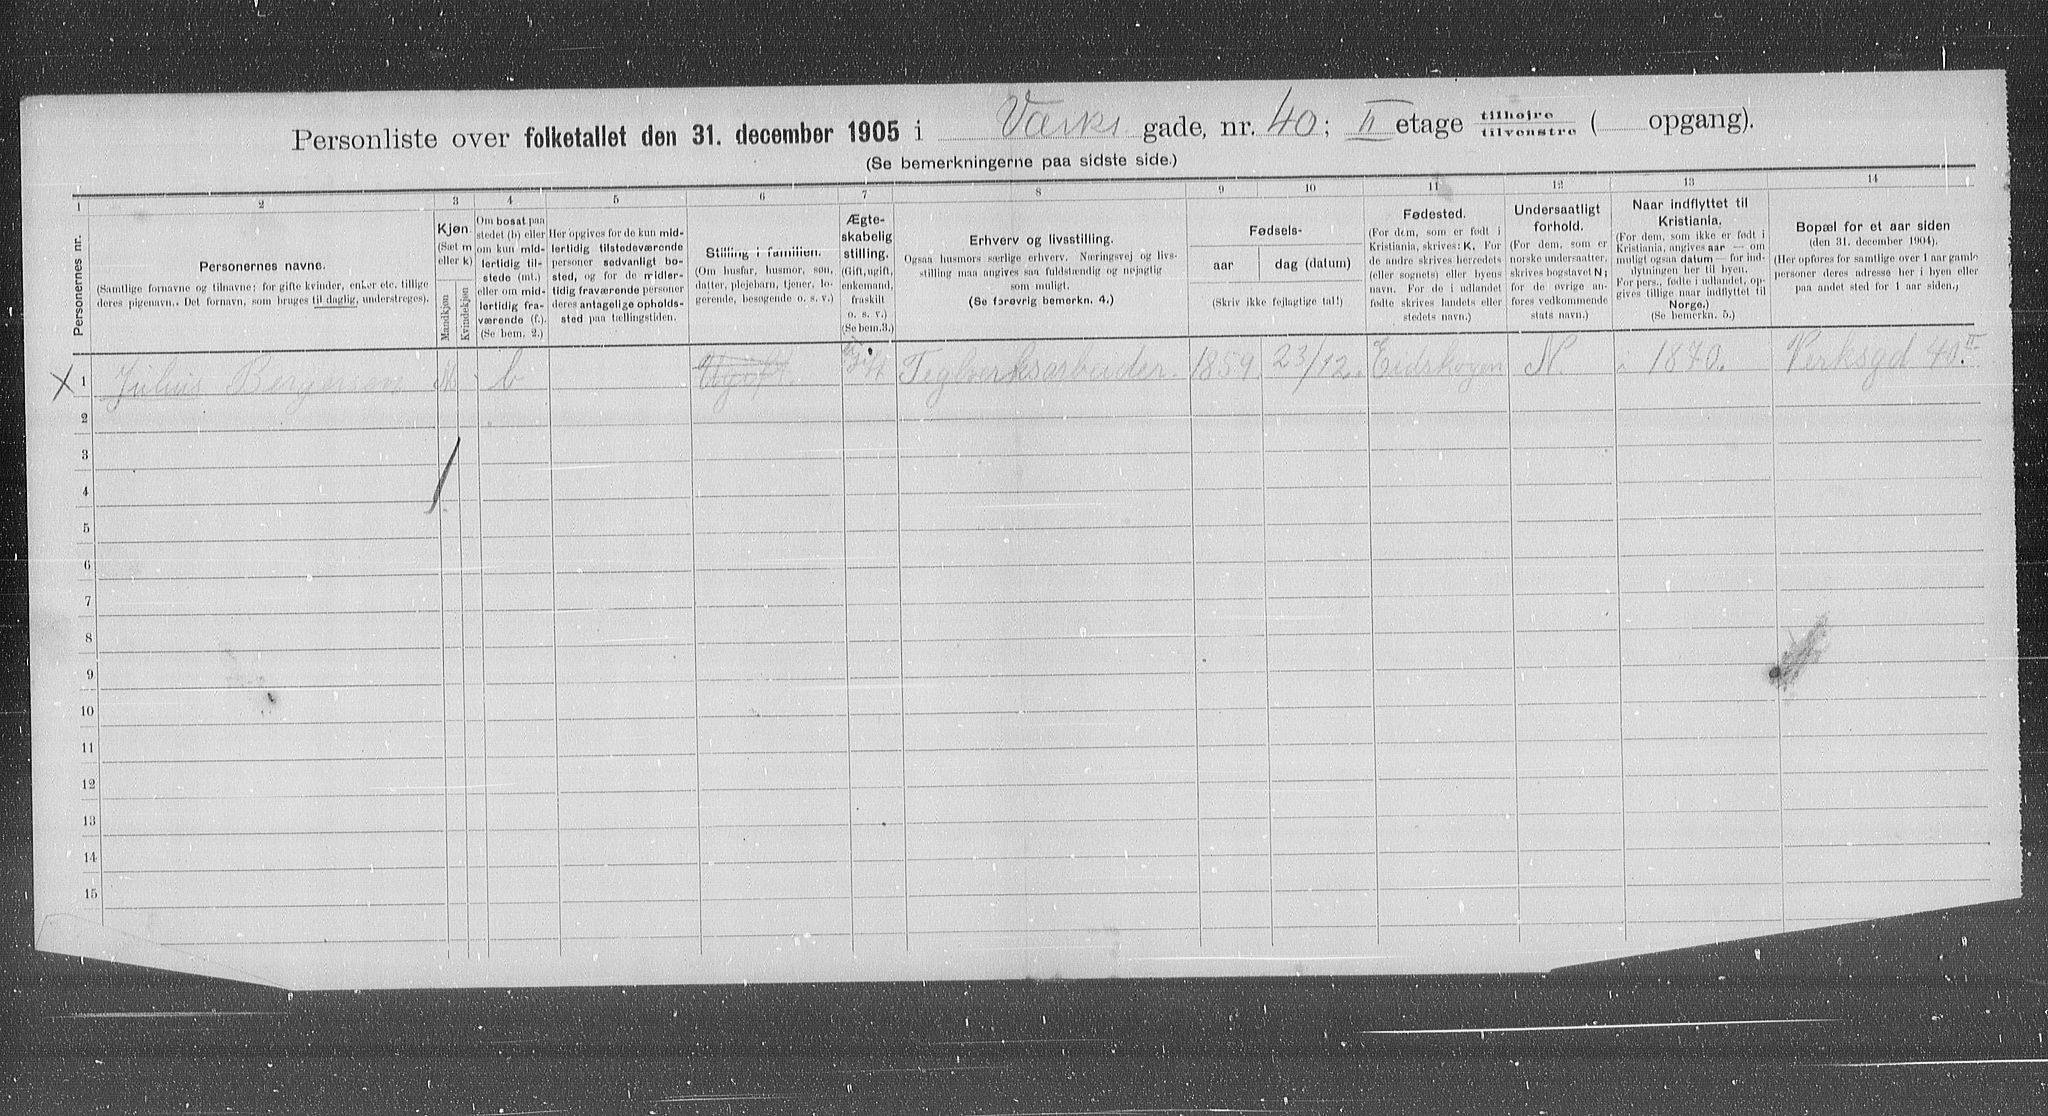 Personliste over folketallet den 31. december 1905 i Værks gade, nr. 40; II etage tilhøjre tilvenstre ( opgang).
(Se bemerkningerne paa sidste side.)
1 2 3 4 5 6 7 8 9 10 11 12 13 14
Personernes nr.
Personernes navne.
(Samtlige fornavne og tilnavne; for gifte kvinder, enker etc. tillige
deres pigenavn. Det fornavn, som bruges til daglig, understreges).
Kjøn.
(Sæt m
eller k)
Mandkjøn
Kvindekjøn
Om bosat paa
stedet (b) eller
om kun mid-
lertidig til-
stede (mt.)
eller om mid-
lertidig fra-
værende (f.).
(Se bem. 2.)
Her opgives for de kun mid-
lertidig tilstedeværende
personer sedvanligt bo-
sted, og for de midler-
tidig fraværende personer
deres antagelige opholds-
sted paa tællingstiden.
Stilling i familien.
(Om husfar, husmor, søn,
datter, plejebarn, tjener, lo-
gerende, besøgende o. s. v.)
Ægte-
skabelig
stilling.
(Gift, ugift,
enkemand,
fraskilt
o. s. v.)
(Se bem. 3.)
Erhverv og livsstilling.
Ogsaa husmors særlige erhverv. Næringsvej og livs-
stilling maa angives saa fuldstændig og nøjagtig
som muligt.
(Se forøvrig bemerkn. 4.)
Fødsels-
aar dag (datum)
(Skriv ikke fejlagtige tal!)
Fødested.
(For dem, som er født i
Kristiania, skrives: K. For
de andre skrives herredets
(eller sognets) eller byens
navn. For de i udlandet
fødte skrives landets eller
stedets navn.)
Undersaatligt
forhold.
(For dem, som er
norske undersaatter,
skrives bogstavet N;
for de øvrige an-
føres vedkommende
stats navn.)
Naar indflyttet til
Kristiania.
(For dem, som ikke er født i
Kristiania, angives aar — om
muligt ogsaa datum — for ind-
flytningen her til byen.
For pers., fødte i udlandet, op-
gives tillige naar indflyttet til
Norge.)
(Se bemerkn. 5.)
Bopæl for et aar siden
(den 31. december 1904).
(Her opføres for samtlige over 1 aar gamle
personer deres adresse her i byen eller
paa andet sted for 1 aar siden.)
X 1 Julius Bergersen M b Ugift. ugift Teglverksarbeider. 1859. 23/12. Eidskogen N. 1870. Verksgd 40. II
2
3
4
5
6
7
8
9
10
11
12
13
14
15